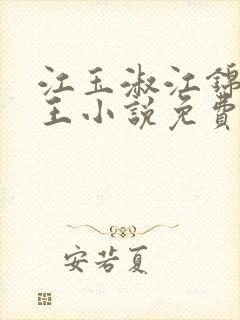 江玉淑江锦
王小説免費
安若夏